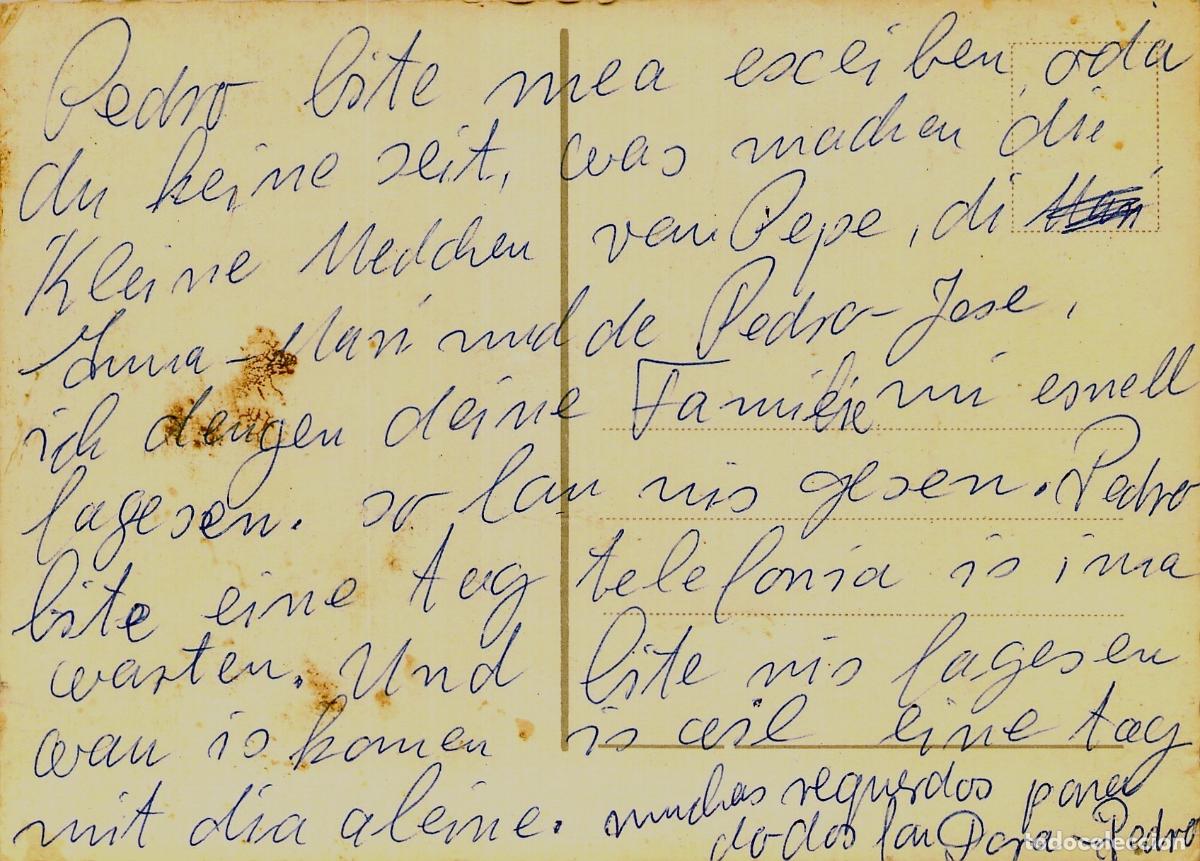 Pedro bite mea esceiben, oda
du keine seit, was machen die
Kleine Medchen van Pepe, di
Inma-Mari und de Pedro-Jose,
ich dengen deine Familie ni esnell
fagesen. so lan nis gesen. Pedro
bite eine tag telefonia is ima
warten. Und bite nis fagesen
wan is komen is wil eine tag
mit dia aleine. muchas requerdos para
dodos
Pedro
todocoleccion